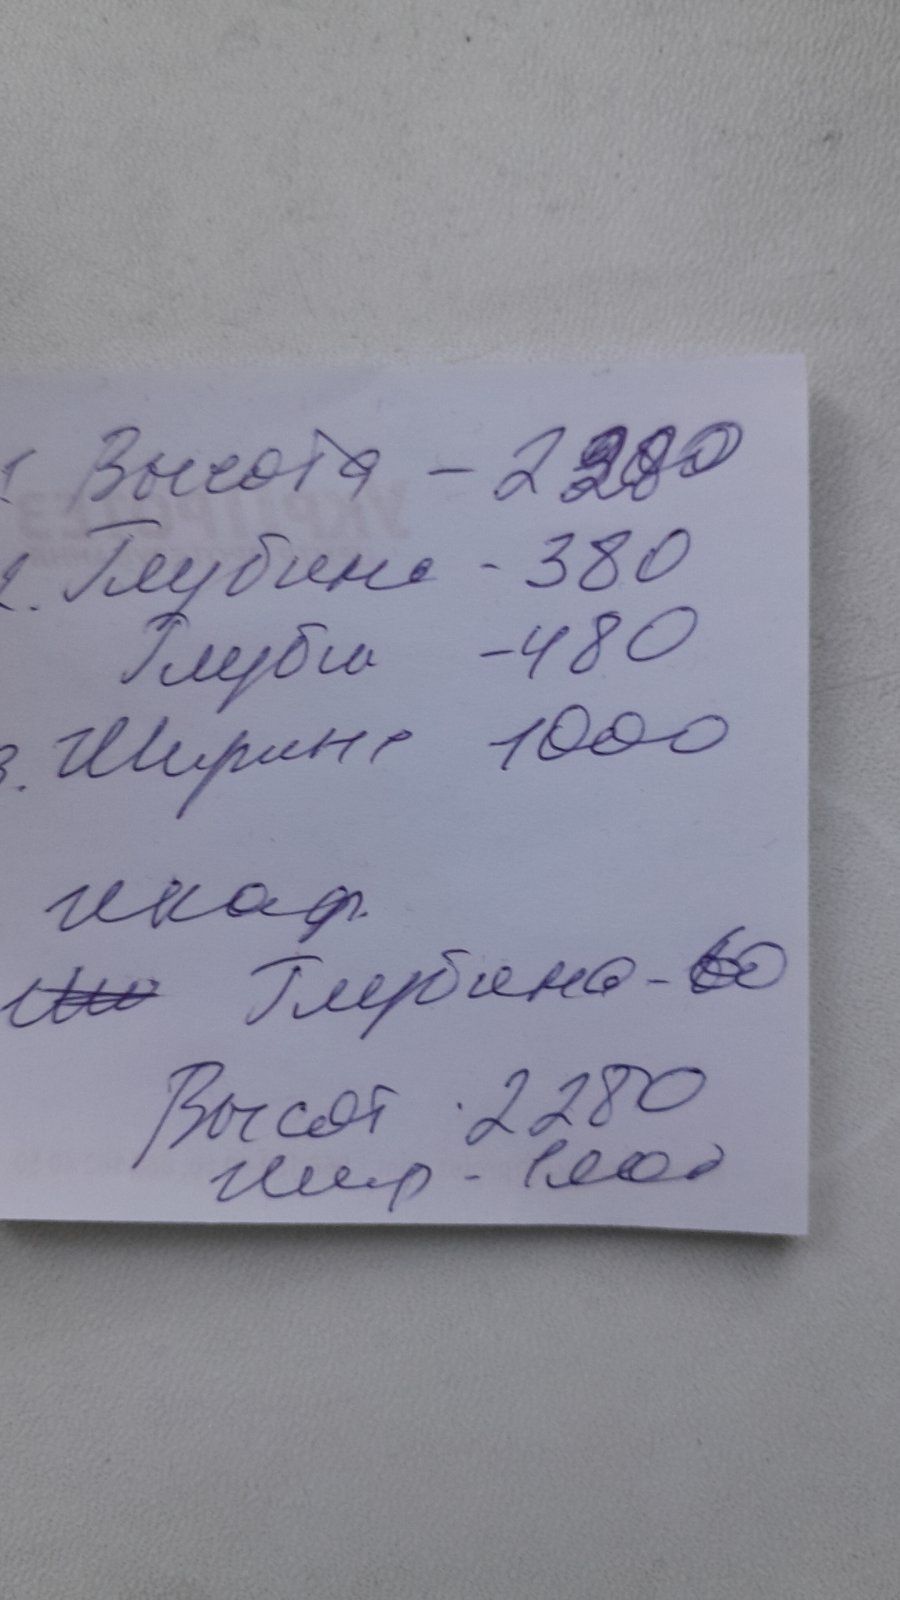 1. Высота - 2280
2. Глубина - 380
Глуби - 480
3. Ширина 1000
Шкаф.
Глубина - 60
Высот 2280
Шир - 1000